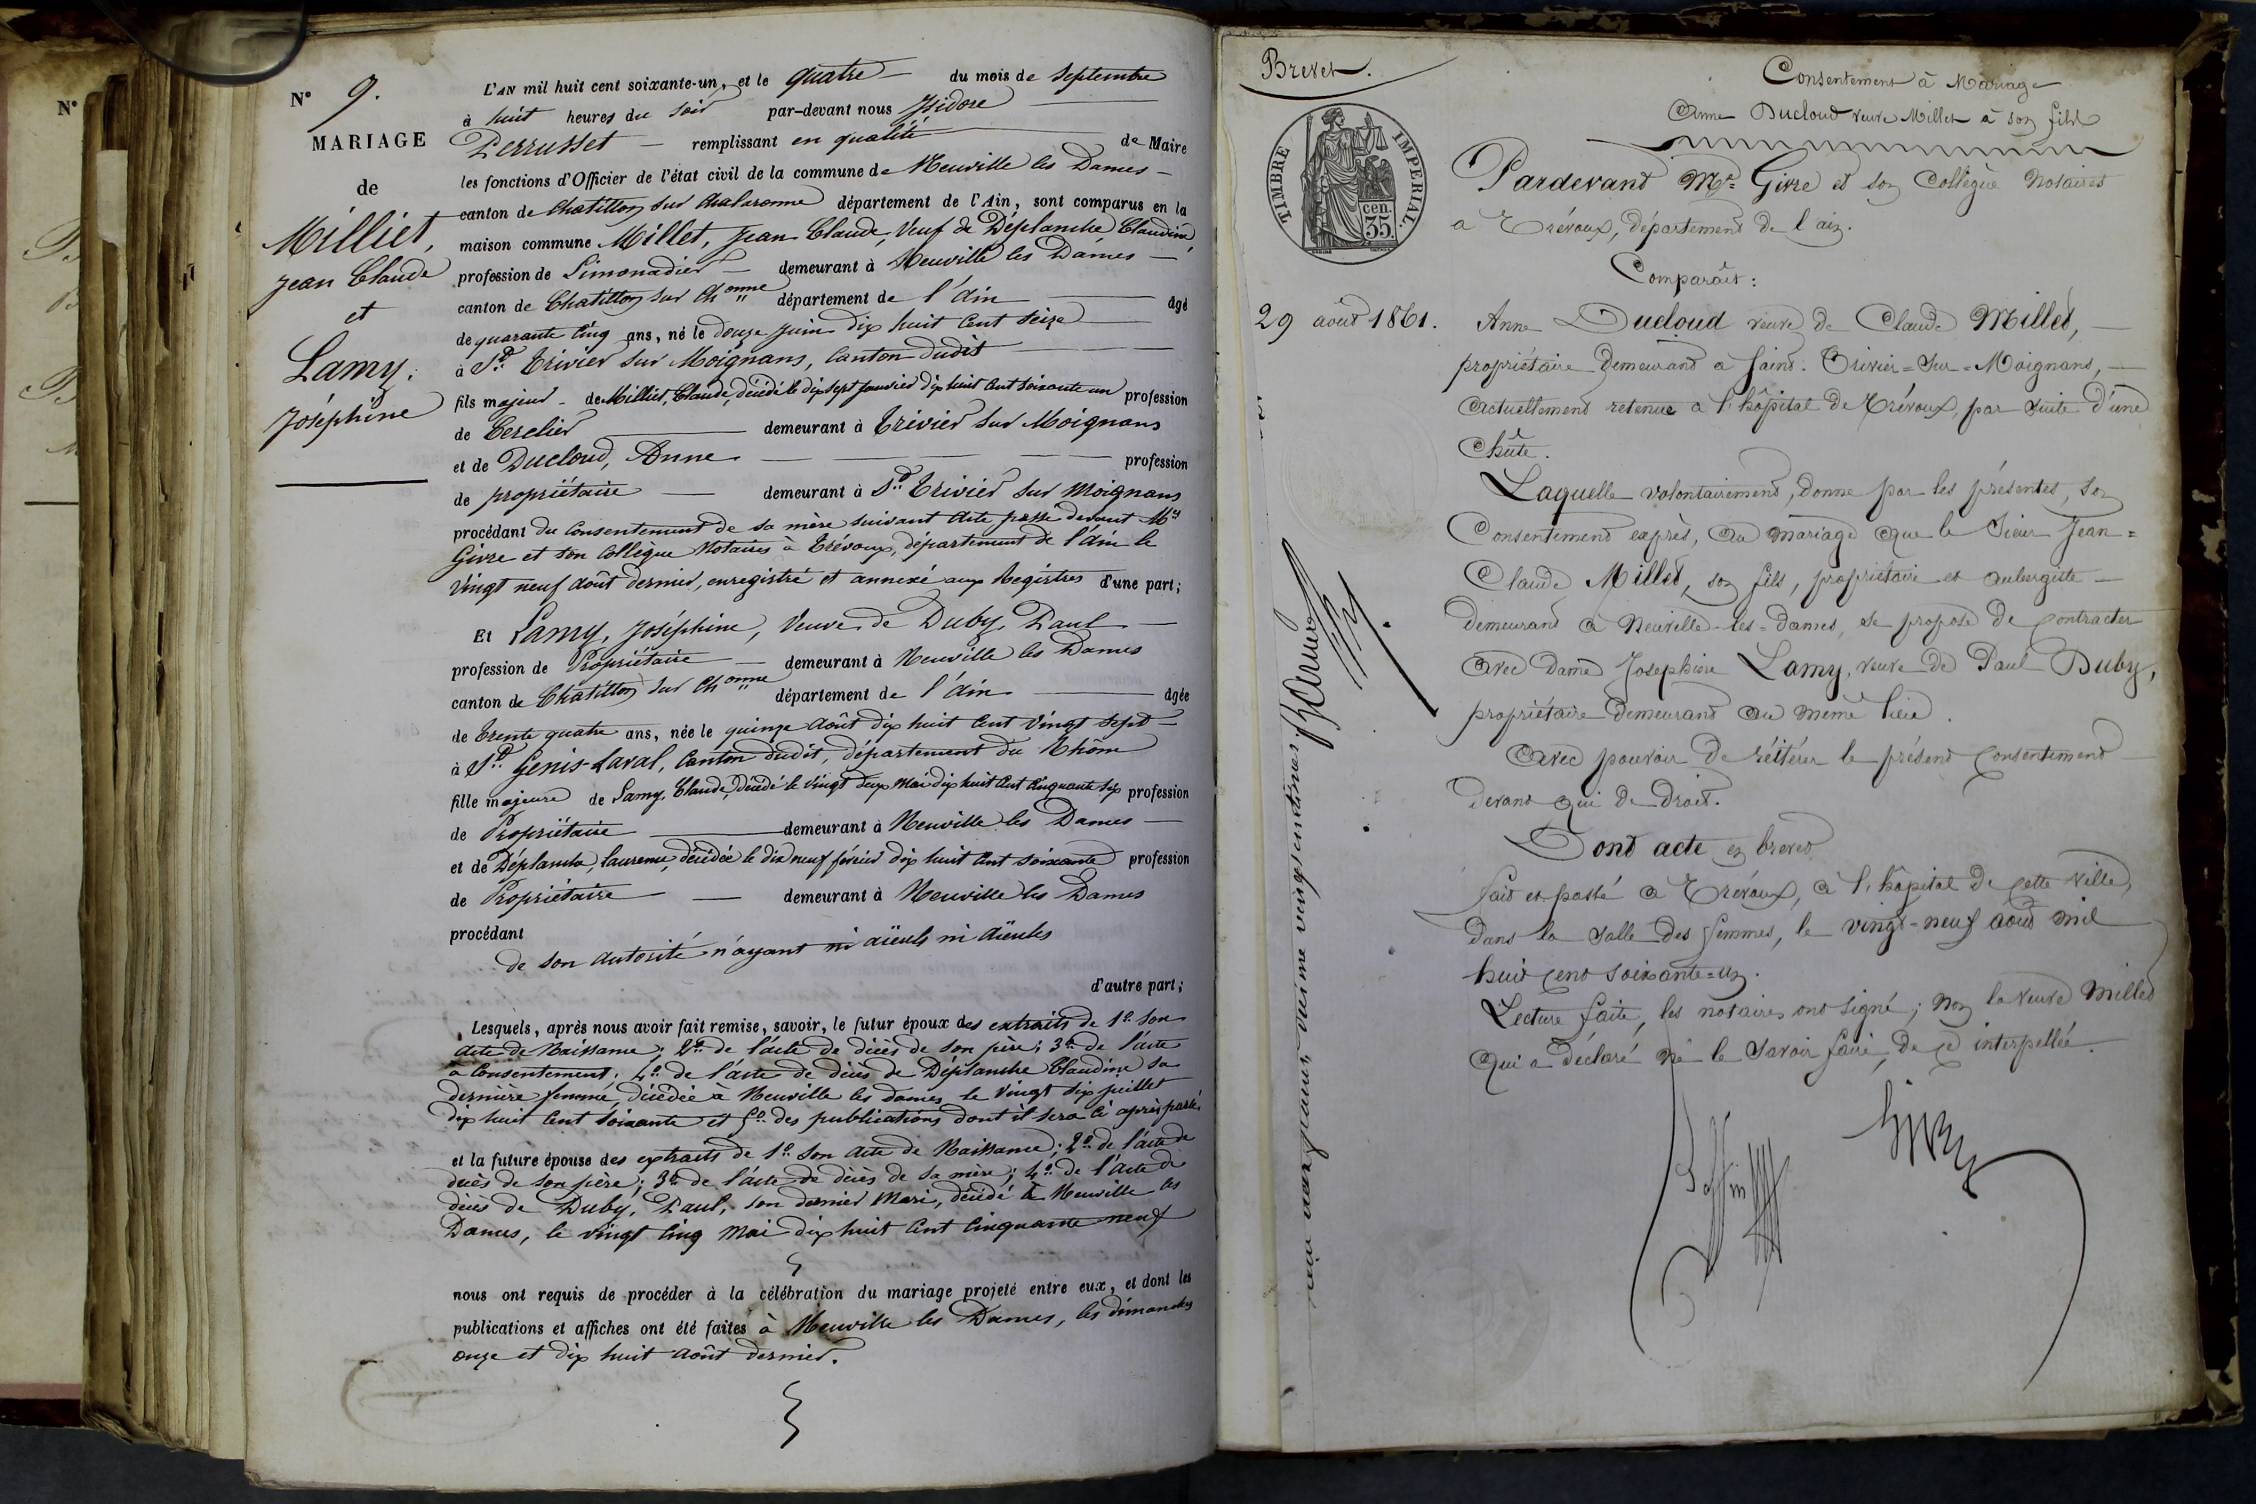 N°
N° 9.
MARIAGE
de
Milliet,
Jean Claude
et
Lamy,
Joséphine
L'AN mil huit cent soixante-un, et le quatre du mois de Septembre
à huit heures du soir par-devant nous Isidore
Perrusset remplissant en qualité de Maire
les fonctions d'Officier de l'état civil de la commune de Neuville les Dames
canton de Chatillon sur Chalaronne département de l'Ain, sont comparus en la
maison commune Millet, Jean Claude, Veuf de Déplanche Claudine,
profession de Limonadier demeurant à Neuville les Dames
canton de Chatillon sur Ch onne département de l'Ain âgé
de quarante cinq ans, né le douze juin dix huit cent seize
à St. Trivier sur Moignans, Canton dudit
fils majeur de Milliet, Claude, décédé le dix sept janvier dix huit cent soixante un profession
de Cerclier demeurant à Trivier sur Moignans
et de Ducloud, Anne profession
de propriétaire demeurant à St. Trivier sur Moignans
procédant du consentement de sa mère suivant acte passé devant Me
Givre et son collègue Notaires à Trévoux, département de l'Ain le
Vingt neuf août dernier, enregistré et annexé aux Registres d'une part;
Et Lamy, Joséphine, Veuve de Duby, Paul
profession de Propriétaire demeurant à Neuville les Dames
canton de Chatillon sur Ch onne département de l'Ain âgée
de trente quatre ans, née le quinze Août dix huit cent vingt sept
à St. Genis-Laval, Canton dudit, département du Rhône
fille majeure de Lamy, Claude, décédé le vingt deux Mai dix huit cent cinquante six profession
de Propriétaire demeurant à Neuville les Dames
et de Déplanche, Laurence, décédée le dix neuf février dix huit cent soixante profession
de Propriétaire demeurant à Neuville les Dames
procédant
de son autorité n'ayant ni aïeuls ni aïeules
d'autre part;
Lesquels, après nous avoir fait remise, savoir, le futur époux des extraits de 1° son
acte de Naissance; 2° de l'acte de décès de son père; 3° de l'acte
à Consentement; 4° de l'acte de décès de Déplanche Claudine sa
dernière femme, décédée à Neuville les dames le vingt six juillet
dix huit cent soixante et 5° des publications dont il sera ci après parlé,
et la future épouse des extraits de 1° son acte de Naissance; 2° de l'acte de
décès de son père; 3° de l'acte de décès de sa mère; 4° de l'acte de
décès de Duby, Paul, son dernier Mari, décédé à Neuville les
Dames, le vingt cinq Mai dix huit cent cinquante neuf
nous ont requis de procéder à la célébration du mariage projeté entre eux, et dont les
publications et affiches ont été faites à Neuville les Dames, les dimanches
onze et dix huit Août dernier.
Brevet.
TIMBRE IMPERIAL.
cen.
35.
29 août 1861.
Consentement à Mariage
Anne Ducloud veuve Millet à son fils
Pardevant Me. Givre et son Collègue Notaires
a Trévoux, département de l'ain.
Comparaît:
Anne Ducloud veuve de Claude Millet,
propriétaire demeurant a Saint-Trivier=Sur=Moignans,
actuellement retenue a l'hôpital de Trévoux, par suite d'une
Chûte.
Laquelle volontairement, donne par les présentes, son
Consentement exprès, au mariage que le Sieur Jean=
Claude Millet, son fils, propriétaire et aubergiste
demeurant a Neuville-les-dames, se propose de contracter
avec dame Josephine Lamy, veuve de Paul Duby,
propriétaire demeurant au même lieu.
Avec pouvoir de réitérer le présent consentement
devant qui de droit.
Dont acte en brevet
fait et passé a Trévoux, à l'hôpital de cette ville,
dans la salle des femmes, le vingt-neuf août mil
huit cent soixante=un.
Lecture faite, les notaires ont signé; non la veuve Millet
qui a déclaré ne le savoir faire, de ce interpellée.
Givre